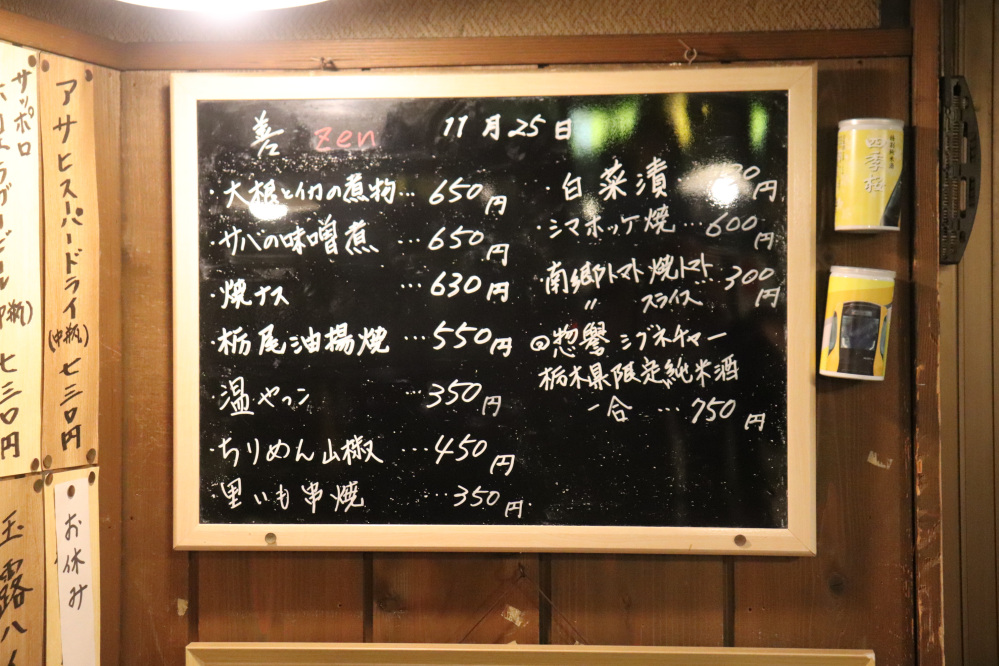 善 zen 11月25日
・大根とイカの煮物…650円
サバの味噌煮 …650円
・焼ナス …630円
・栃尾油揚焼 …550円
・温やっこ …350円
・ちりめん山椒 …450円
・里いも串焼 …350円
・白菜漬 円
・シマホッケ焼…600円
・南郷トマト焼トマト 300円
〃 スライス
惣譽シグネチャー
栃木県限定純米酒
一合 …750円
サッポロ
アサヒスーパードライ(中瓶)七三〇円
七三〇円
お休み
玉露ハイ
四季桜